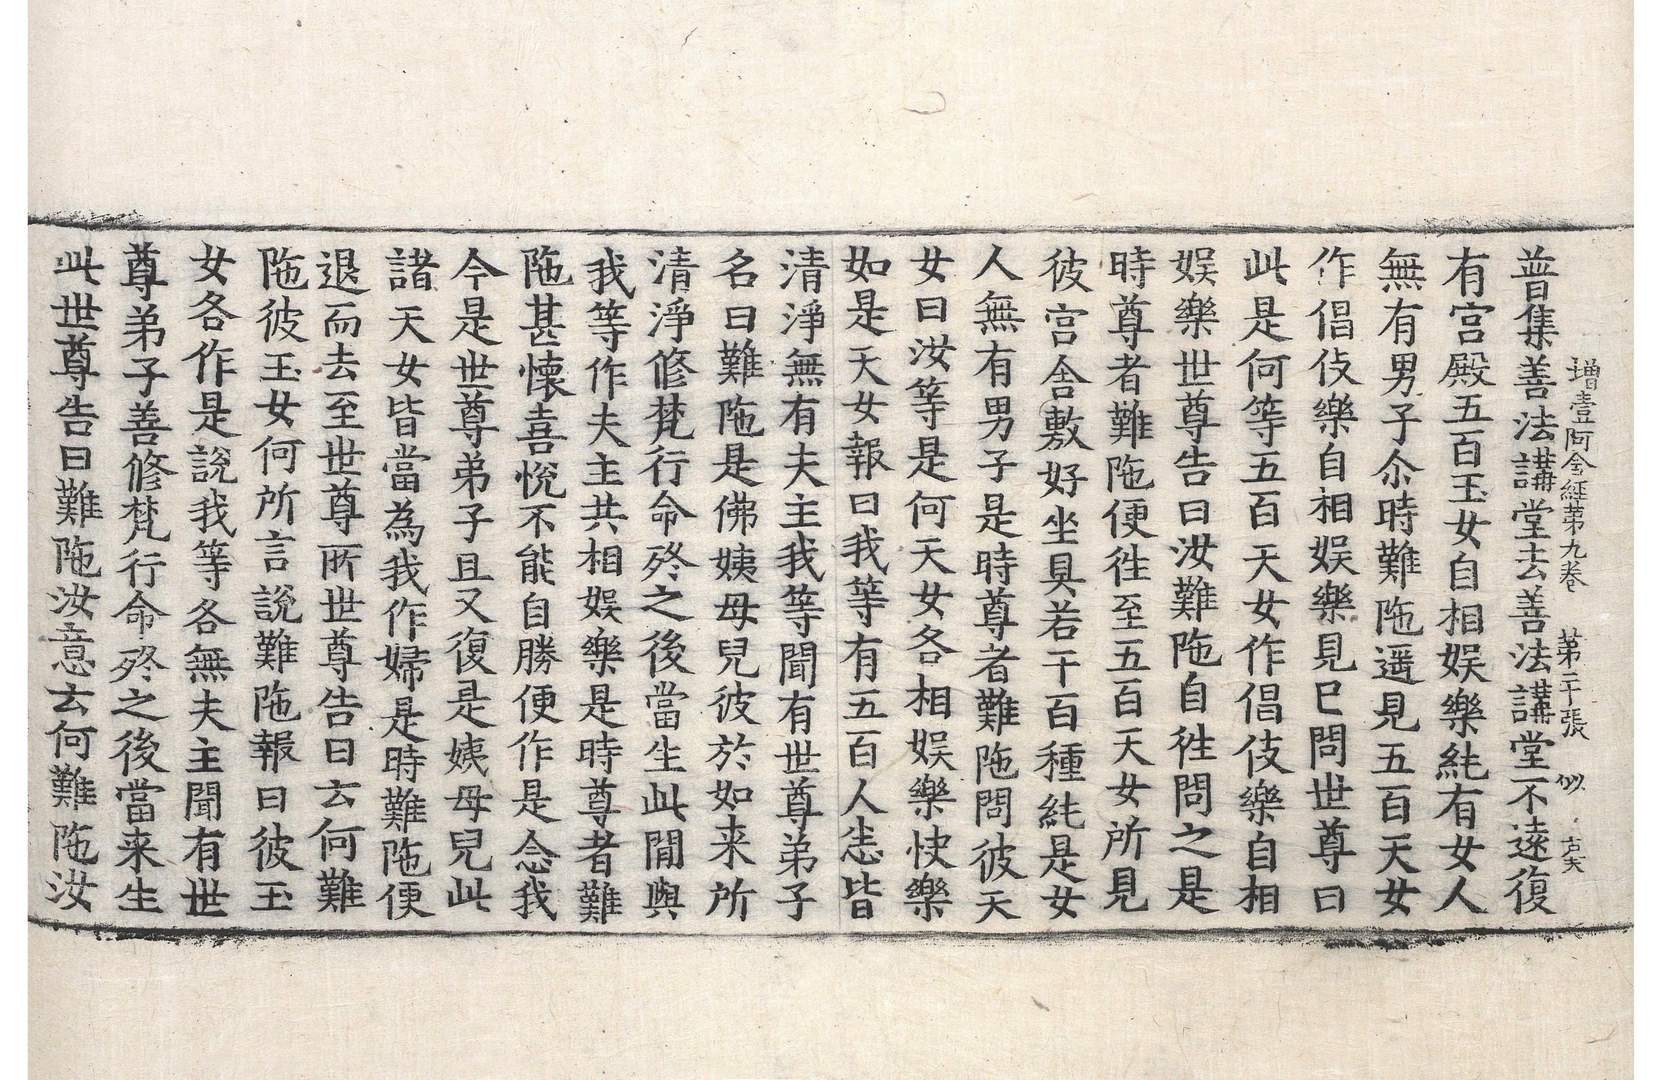 增壹阿含經第九卷　第二十張　似　古文
普集善法講堂去善法講堂不遠復
有宮殿五百玉女自相娛樂純有女人
無有男子尒時難陁遥見五百天女
作倡伎樂自相娛樂見已問世尊曰
此是何等五百天女作倡伎樂自相
娛樂世尊告曰汝難陁自徃問之是
時尊者難陁便徃至五百天女所見
彼宮舍敷好坐具若干百種純是女
人無有男子是時尊者難陁問彼天
女曰汝等是何天女各相娛樂快樂
如是天女報曰我等有五百人悉皆
清淨無有夫主我等聞有世尊弟子
名曰難陁是佛姨母兒彼於如来所
清淨修梵行命終之後當生此間與
我等作夫主共相娛樂是時尊者難
陁甚懷喜悅不能自勝便作是念我
今是世尊弟子且又復是姨母兒此
諸天女皆當為我作婦是時難陁便
退而去至世尊所世尊告曰云何難
陁彼玉女何所言說難陁報曰彼玉
女各作是說我等各無夫主聞有世
尊弟子善修梵行命終之後當来生
此世尊告曰難陁汝意云何難陁汝